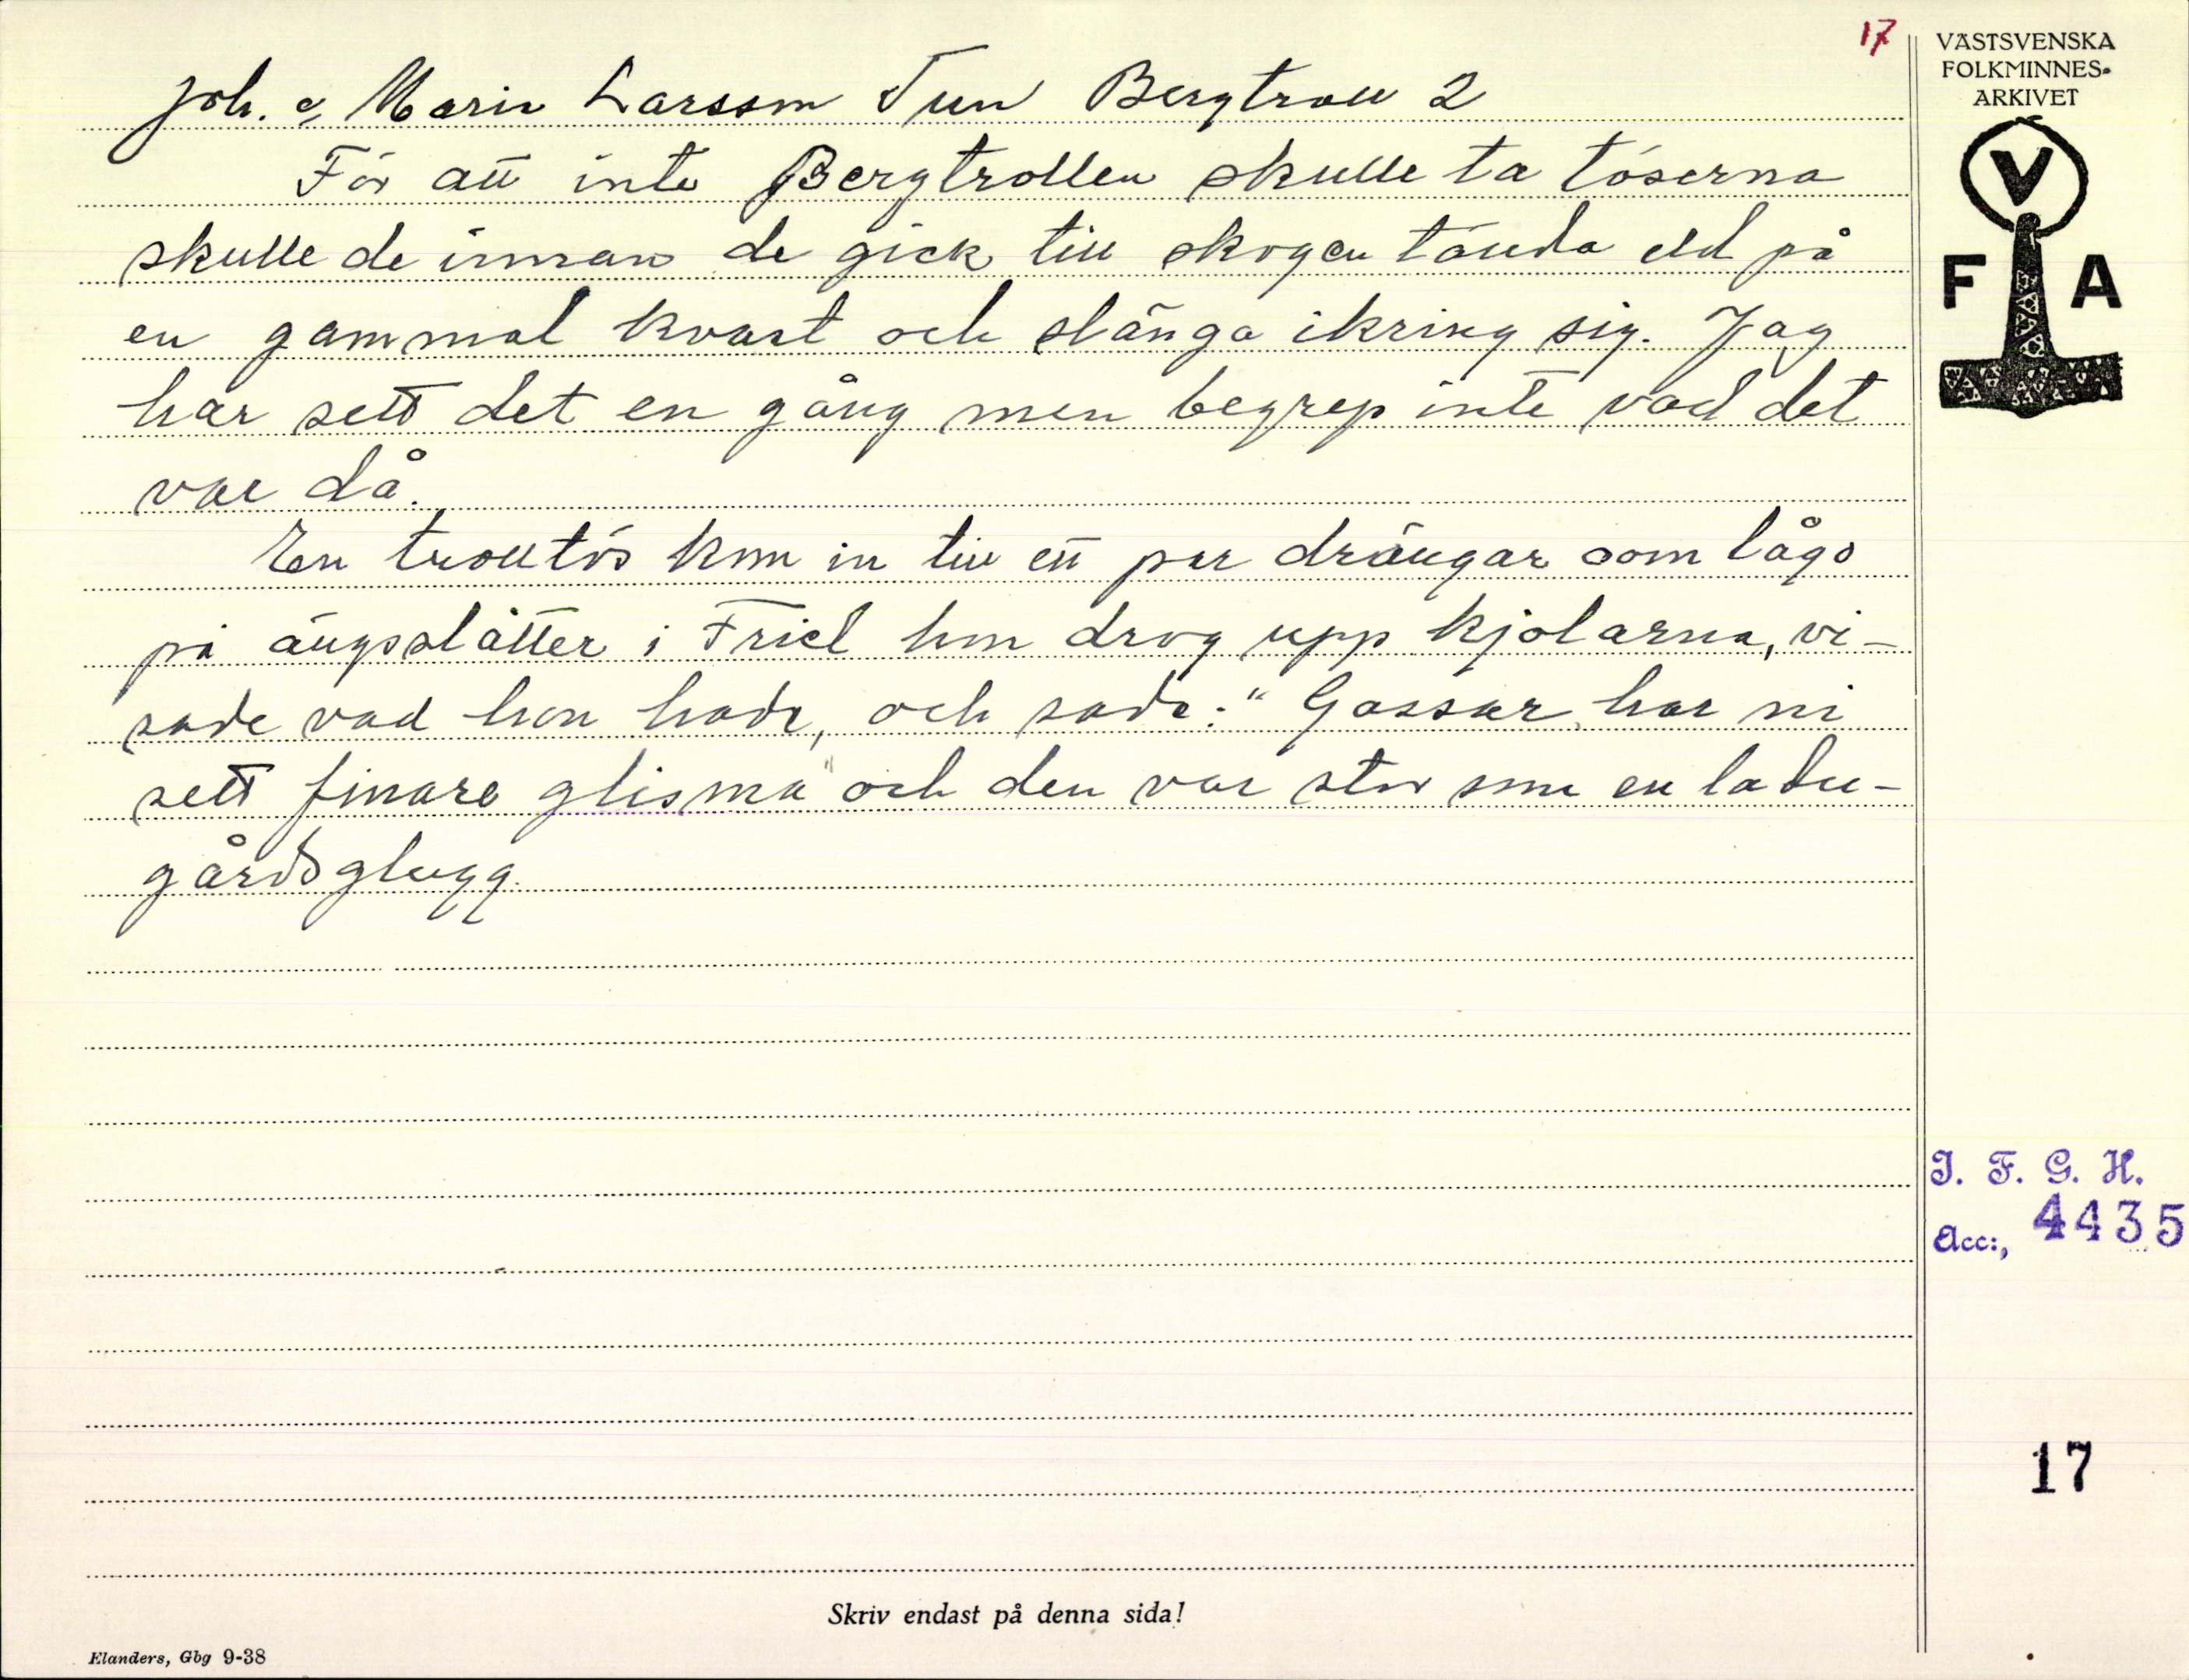 17
Joh. o, Maria Larsson Tun Bergtroll 2
För att inte Bergtrollen skulle ta töserna
skulle de innan de gick till skogen tända eld på
en gammal kvast och slänga ikring sig. Jag
har sett det en gång men begrep inte vad det
var då.
En trolltös kom in till ett par drängar som lågo
på ängsslåtter i Friel hon drog upp kjolarna, vi-
sade vad hon hade, och sade: "Gossar har ni
sett finare glisma" och den var stor som en ladu-
gårdsglugg.
VÄSTSVENSKA
FOLKMINNES-
ARKIVET
V
F A
I. F. G. H.
Acc:, 4435
17
Skriv endast på denna sida!
Elanders, Gbg 9-38